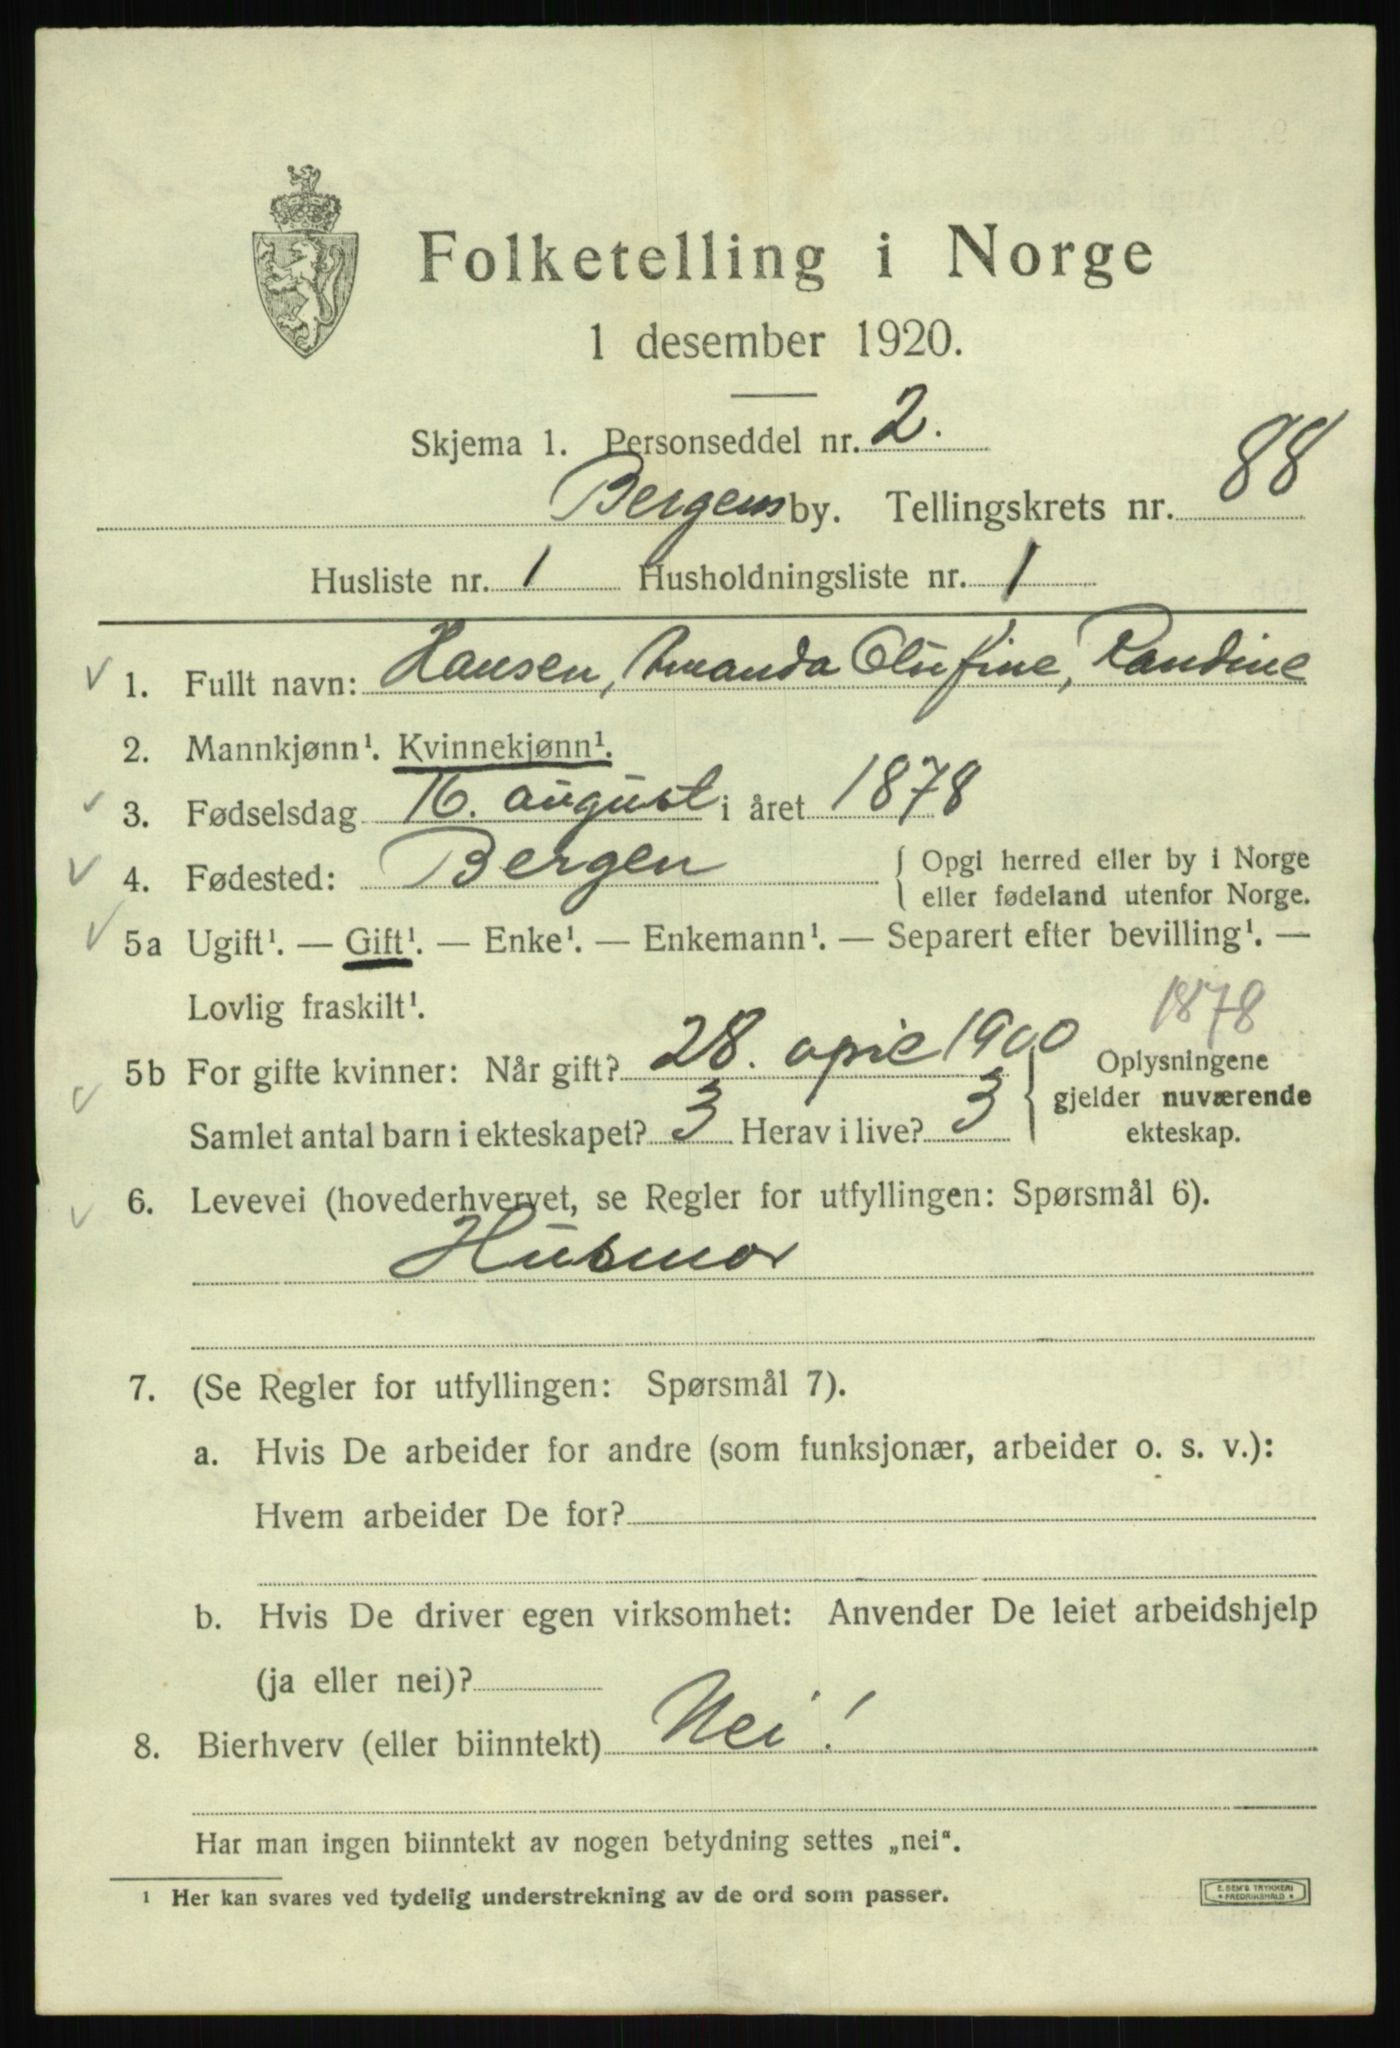 Folketelling i Norge
1 desember 1920.
Skjema 1. Personseddel nr. 2.
Bergens by. Tellingskrets nr. 88
Husliste nr. 1 Husholdningsliste nr. 1
1. Fullt navn: Hansen, Amanda Olufine, Randine
2. Mannkjønn¹. Kvinnekjønn¹.
3. Fødselsdag 16. august i året 1878
4. Fødested: Bergen { Opgi herred eller by i Norge
eller fødeland utenfor Norge.
5a Ugift¹. — Gift¹. — Enke¹. — Enkemann¹. — Separert efter bevilling¹. —
Lovlig fraskilt¹.
1878
5b For gifte kvinner: Når gift? 28. april 1900 { Oplysningene
gjelder nuværende
Samlet antal barn i ekteskapet? 3 Herav i live? 3 ekteskap.
6. Levevei (hovederhvervet, se Regler for utfyllingen: Spørsmål 6).
Husmor
7. (Se Regler for utfyllingen: Spørsmål 7).
a. Hvis De arbeider for andre (som funksjonær, arbeider o. s. v.):
Hvem arbeider De for?
b. Hvis De driver egen virksomhet: Anvender De leiet arbeidshjelp
(ja eller nei)?
8. Bierhverv (eller biinntekt) Nei!
Har man ingen biinntekt av nogen betydning settes „nei“.
¹ Her kan svares ved tydelig understrekning av de ord som passer.
E. SEM'S TRYKKERI
• FREDRIKSHALD •